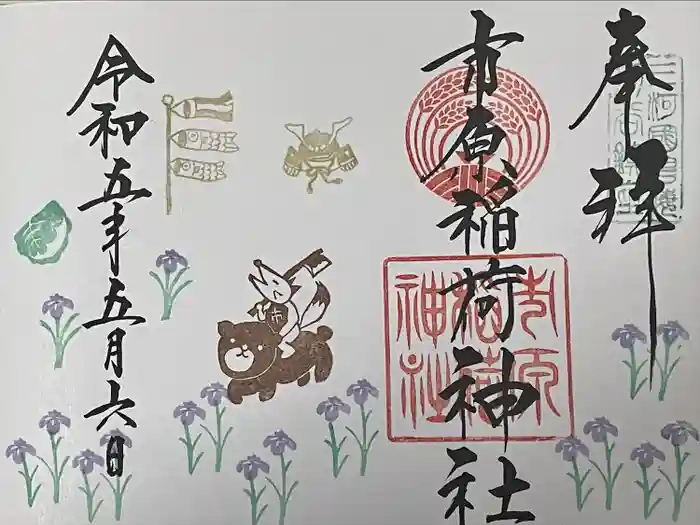 奉拝
市原稲荷神社
市原稲荷神社
令和五年五月六日